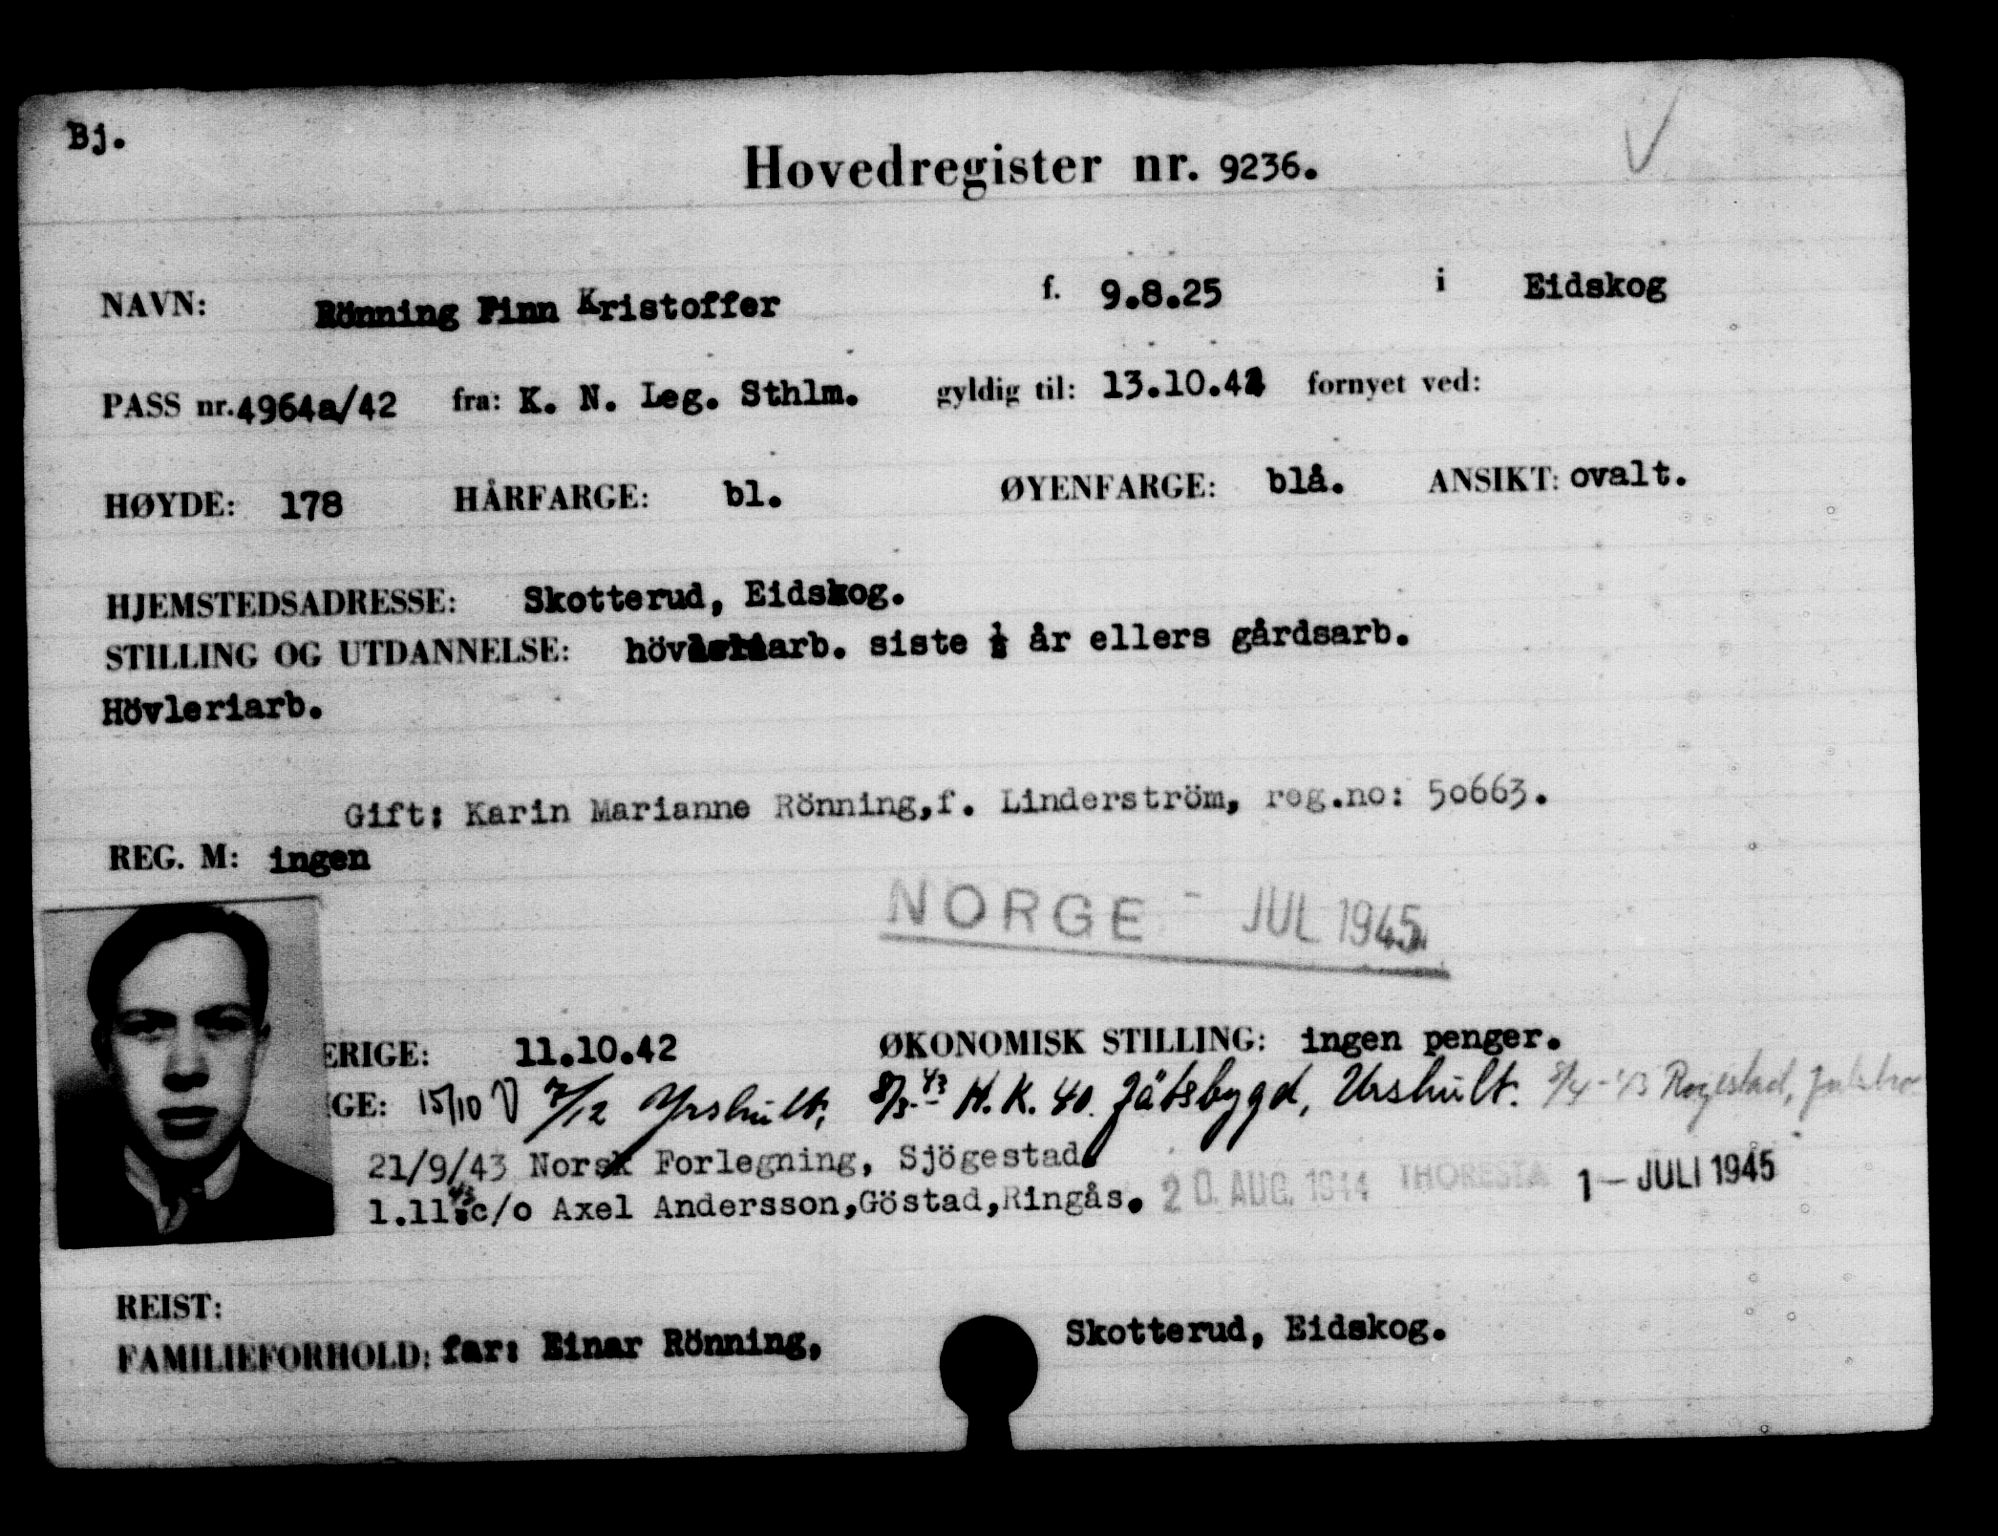 Bj.
Hovedregister nr. 9236.
NAVN: Rönning Finn Kristoffer f. 9.8.25 i Eidskog
PASS nr. 4964a/42 fra: K. N. Leg. Sthlm. gyldig til: 13.10.42 fornyet ved:
HØYDE: 178 HÅRFARGE: bl. ØYENFARGE: blå. ANSIKT: ovalt.
HJEMSTEDSADRESSE: Skotterud, Eidskog.
STILLING OG UTDANNELSE: hövleriarb. siste ½ år ellers gårdsarb.
Hövleriarb.
Gift: Karin Marianne Rönning,f. Linderström, reg.no: 50663.
REG. M: ingen
NORGE - JUL 1945
ERIGE: 11.10.42 ØKONOMISK STILLING: ingen penger.
GE: 15/10 7/12 8/3-43 H.K. 40. Jätsbygd, Urshult.
21/9/43 Norsk Forlegning, Sjögestad.
1.11.43 c/o Axel Andersson,Göstad,Ringås. 20. AUG. 1944 THORESTA 1 - JULI 1945
REIST:
FAMILIEFORHOLD: far: Einar Rönning, Skotterud, Eidskog.